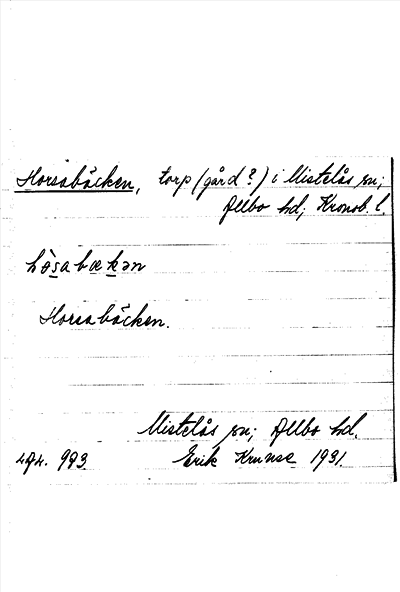 Horsabäcken, torp (gård?) i Mistelås sn;
Allbo hd; Kronob. l.
hòsabækən
Horsabäcken.
Mistelås sn; Allbo hd.
973 Erik Krunse 1931.